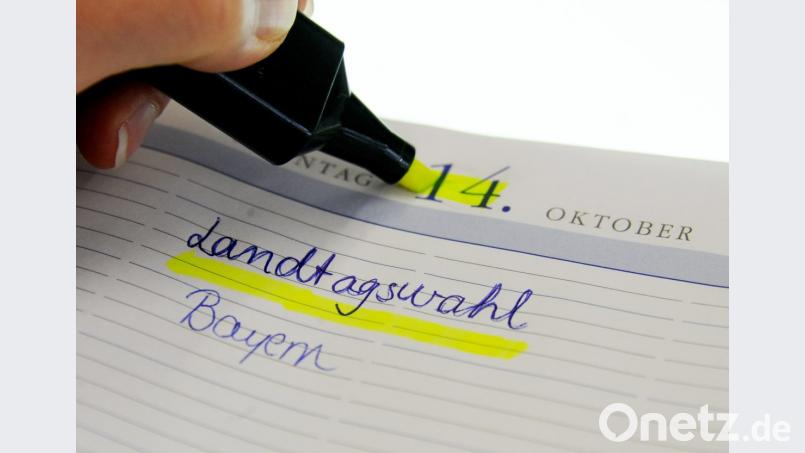 NTAG 14. OKTOBER
Landtagswahl
Bayern
Onetz.de